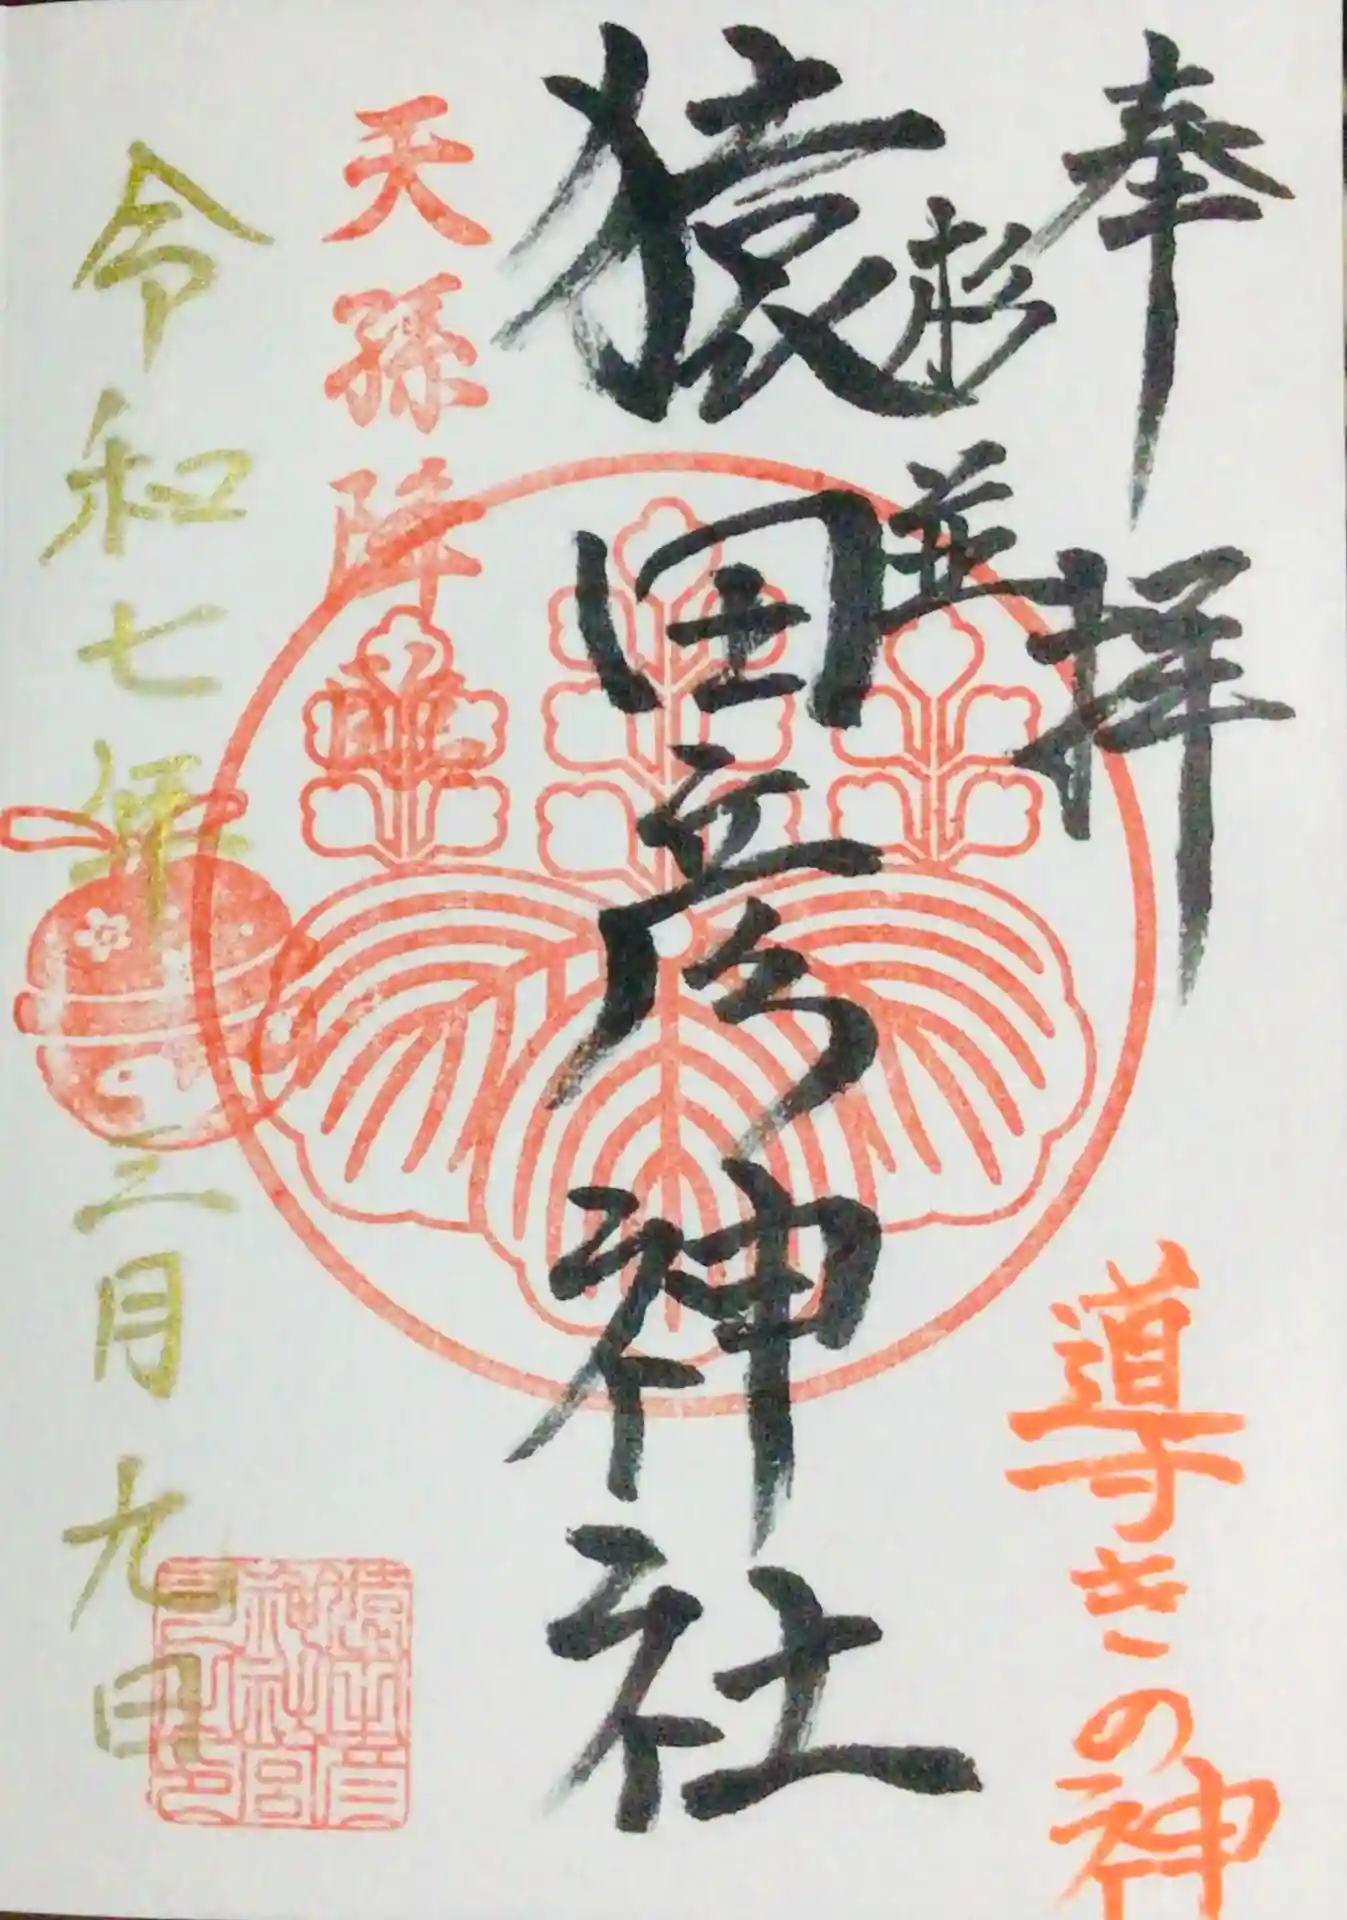 奉拝
導きの神
杉並
猿田彦神社
天孫降臨
令和七年三月九日
猿田彦
神社宮
司之印